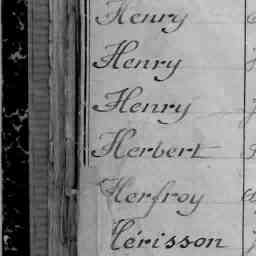 Henry
Henry
Henry
Herbert
Herfroy
Hérisson